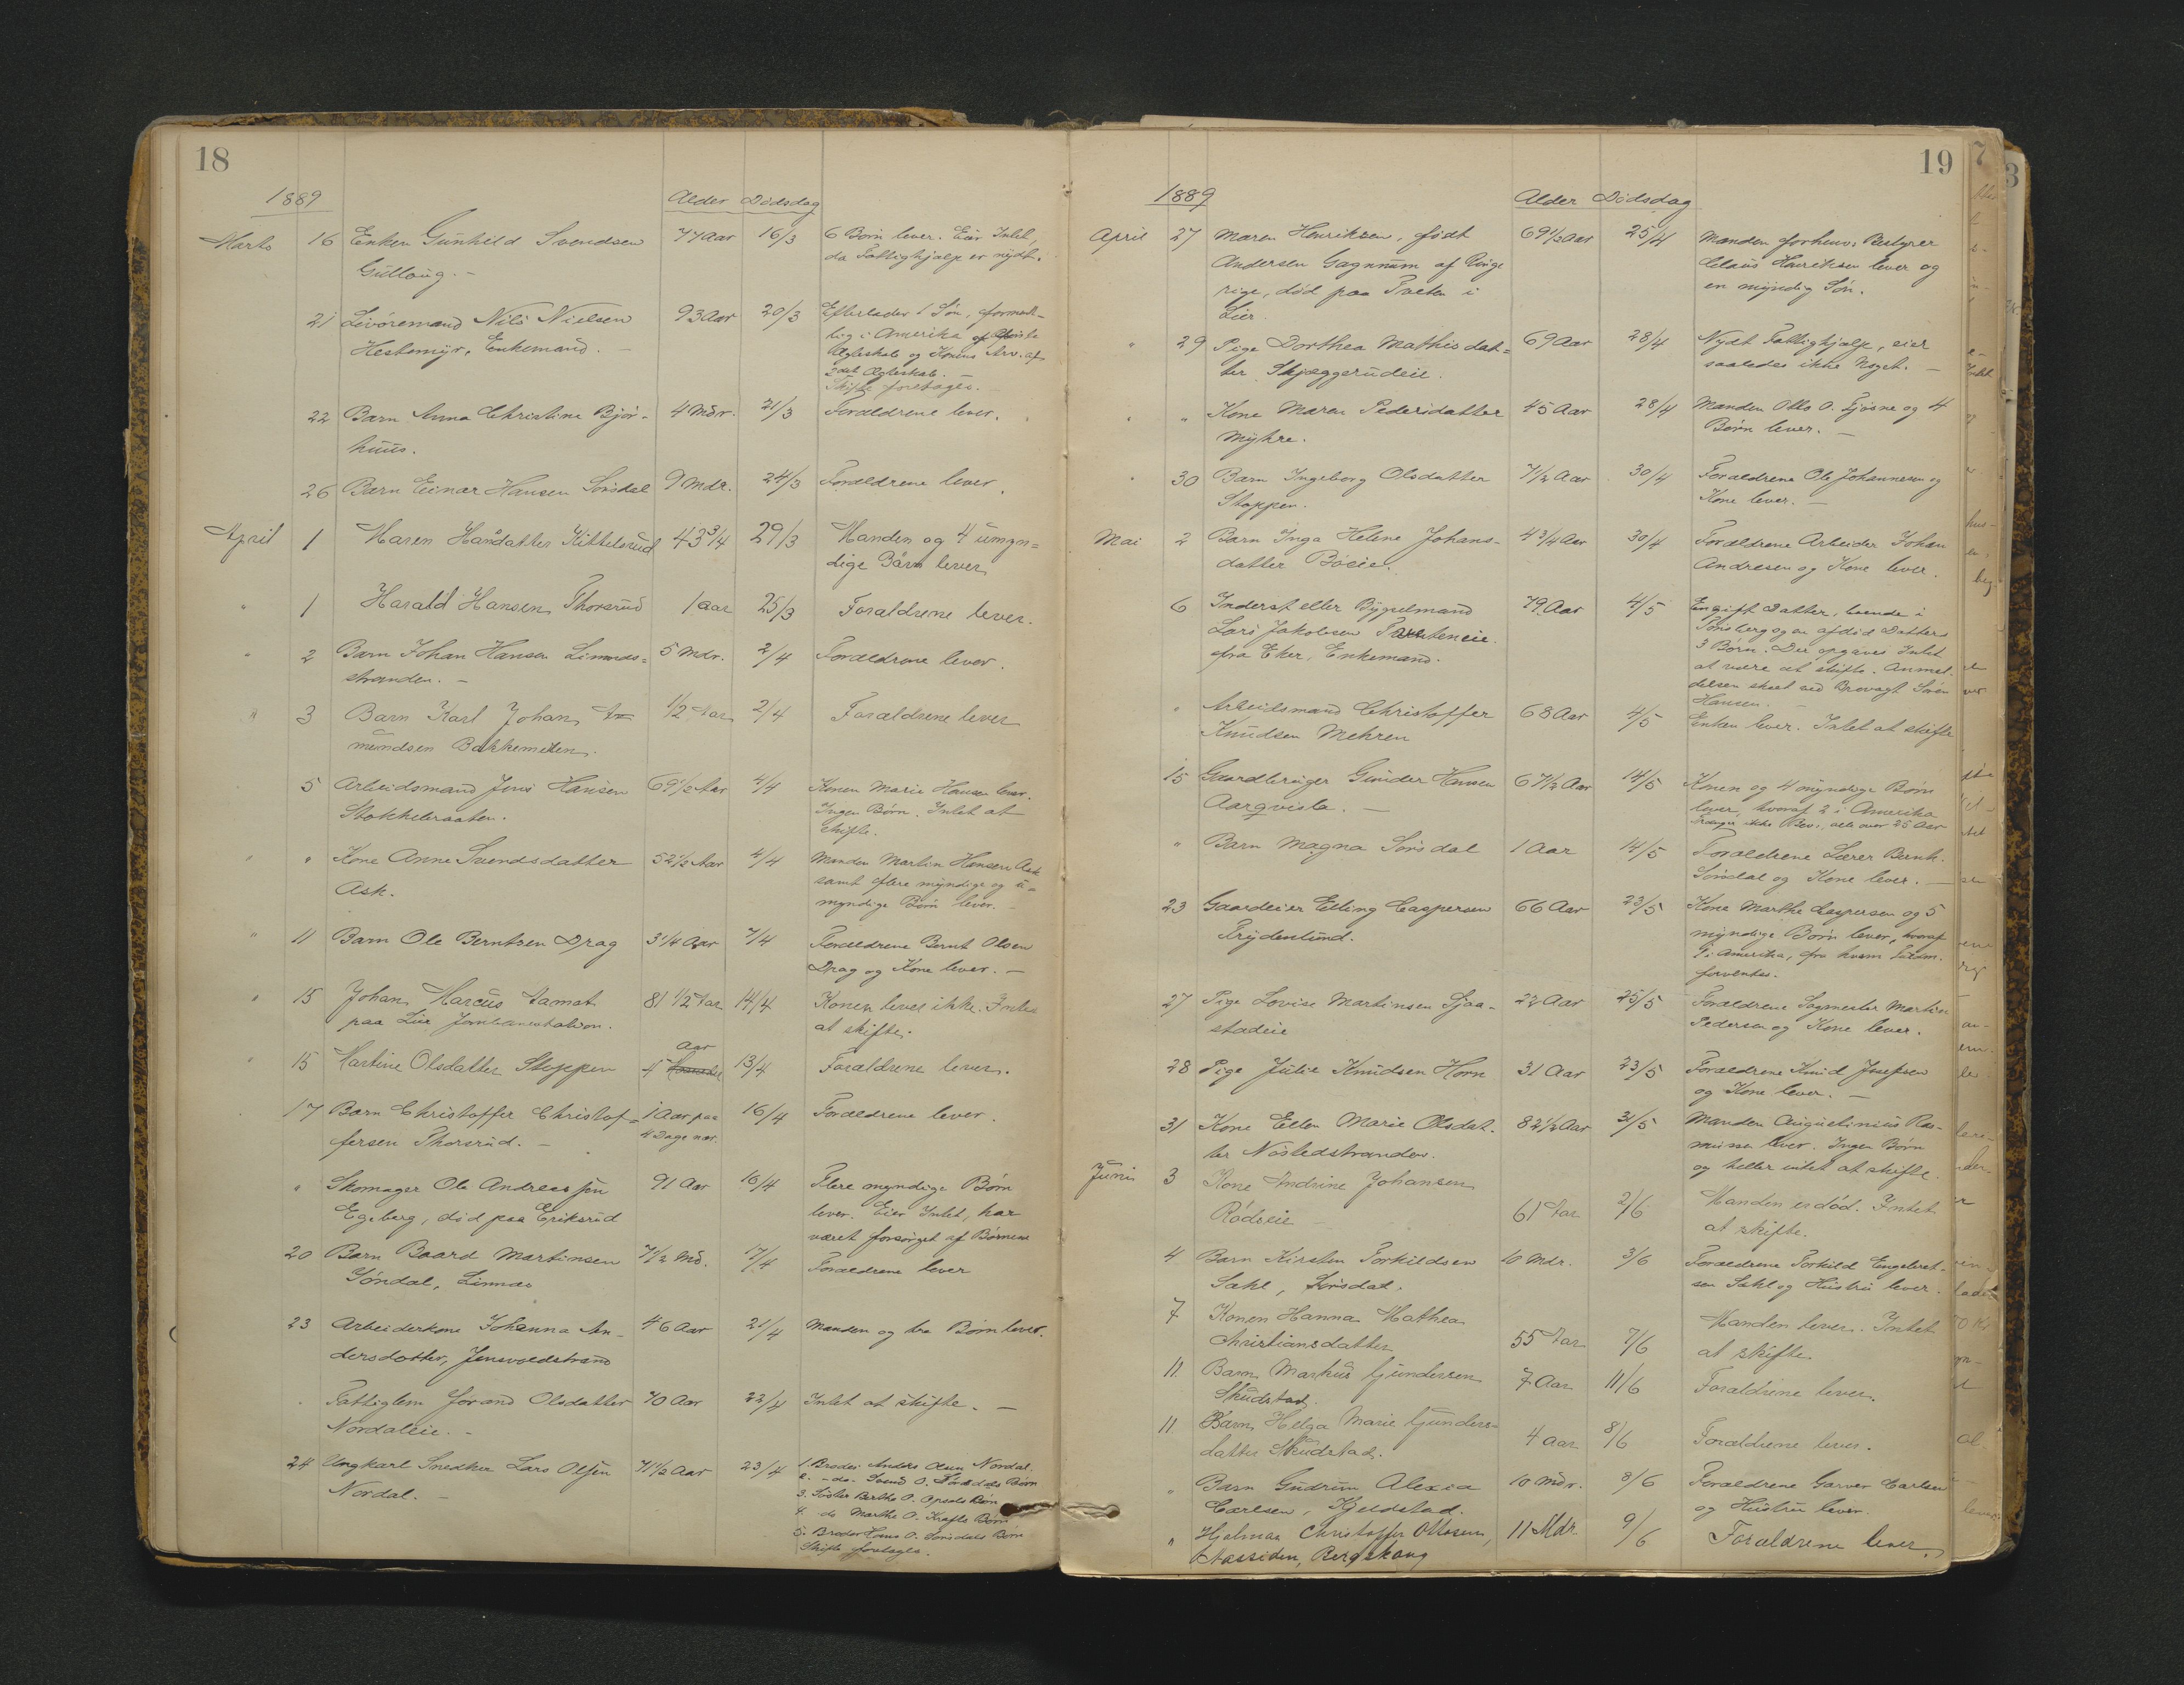 18
1889
Alder Dödsdag
Marts 16 Enken Gunhild Svendsen 77 Aar 16/3 6 Börn lever. Eier Intet,
Gullaug. – da Fattighjælp er nydt.
21 Livöremand Nils Nielsen 93 Aar 20/3 Efterlader 1 Sön, forment-
Hestemyr, Enkemand. – lig i Amerika af förste
Ægteskab og Konens Arv. af
2det Ægteskab. –
Skifte foretages. –
22 Barn Anna Christine Björ- 4 Mdr. 21/3 Forældrene lever.
huus.
26 Barn Einar Hansen Sörsdal 9 Mdr. 24/3 Forældrene lever.
April 1 Maren Hansdatter Kittelsrud 43 3/4 29/3 Manden og 4 umyn=
dige Börn lever
" 1 Harald Hansen Thorsrud 1 aar 25/3 Forældrene lever.
" 2 Barn Johan Hansen Linnes= 5 Mdr. 2/4 Forældrene lever.
stranden. –
" 3 Barn Karl Johan 1/2 Aar 2/4 Forældrene lever
mundsen Bakkemeten.
5 Arbeidsmand Jens Hansen 69 1/2 Aar 4/4 Konen Marie Hansen lever.
Stokkeraaten. Ingen Börn. Intet at
skifte.
" " Kone Anne Svendsdatter 52 1/2 Aar 4/4 Manden Martin Hansen Ask
Ask. samt flere myndige og u=
myndige Börn lever. –
" 11 Barn Ole Berntsen Drag 3 1/4 Aar 7/4 Forældrene Bernt Olsen
Drag og Kone lever. –
" 15 Johan Marcus Aamot 81 1/2 Aar 14/4 Konen lever ikke. Intet
paa Lier Jernbanestation. at skifte.
Aar
" 15 Martine Olsdatter Stoppen 4 Maaneder 13/4 Forældrene lever.
17 Barn Christoffer Christof= 1 Aar paa 16/4 Forældrene lever.
fersen Thorsrud. – 4 Dage nær.
" Skomager Ole Andreassen 91 Aar 16/4 Flere myndige Börn
Egeberg, död paa Eriksrud lever. Eier Intet, har
været forsörget af Börnene
20 Barn Baard Martinsen 7 1/2 Md. 17/4 Forældrene lever
Söndal, Linnes
23 Arbeiderkone Johanna An- 46 Aar 21/4 Manden og tre Börn lever.
dersdatter, Jensvoldstrand
Fattiglem Jörand Olsdatter 70 Aar 22/4 Intet at skifte. –
Nordaleie. –
24 Ungkarl Snedker Lars Olsen 71 1/2 Aar 23/4 1. Broder Anders Olsen Nordal.
Nordal. – 2. – do. Svend O. Börn
3. Söster Berthe O. Opsals Börn
4. do Marthe O. Krafts Börn
5. Broder Hans O. Sörsdals Börn
Skifte foretages.
19
1889
Alder Dödsdag
April 27 Maren Henriksen, födt 69 1/2 Aar 25/4 Manden forhenv. Bestyrer
Andersen Gagnum af Ringe Claus Henriksen lever og
rige, död paa Tveten i en myndig Sön.
Lier.
" 29 Pige Dorthea Mathisdat= 69 Aar 28/4 Nydt Fattighjælp, eier
ter Skjæggerudeie. saaledes ikke Noget. –
" " Kone Maren Pedersdatter 45 Aar 28/4 Manden Otto O. Fjösne og 4
Myhre. Börn lever. –
" 30 Barn Ingeborg Olsdatter 7 1/2 Aar 30/4 Forældrene Ole Johannesen og
Stoppen. Kone lever. –
Mai 2 Barn Inga Helene Johans- 4 3/4 Aar 30/4 Forældrene Arbeider Johan
datter Böeie. Andresen og Kone lever.
6 Inderst eller Bygselmand 79 Aar 4/5 En gift Datter, boende i
Lars Jakobsen Tveteneie Tönsberg og en afdöd Datters
fra Eker, Enkemand. 3 Börn. Der opgaves Intet
at være at skifte. Anmel-
delsen skeet ved Brovagt Sören
Hansen. –
" Arbeidsmand Christoffer 68 Aar 4/5 Enken lever. Intet at skifte
Knudsen Mehren
15 Gaardbruger Gunder Hansen 67 1/2 Aar 14/5 Konen og 4 myndige Börn
Aarqvisla. – lever, hvoraf 2 i Amerika
ikke Bev., alle over 25 Aar
" Barn Magna Sörsdal 1 Aar 14/5 Forældrene Lærer Bernh.
Sörsdal og Kone lever. –
23 Gaardeier Elling Caspersen 66 Aar 23/5 Kone Marthe Caspersen og 5
Frydenlund. myndige Börn lever, hvoraf
1 i Amerika, fra hvem
forventes.
27 Pige Lovise Martinsen Sjaa- 22 Aar 25/5 Forældrene Sagmester Martin
stadeie Pedersen og Kone lever.
28 Pige Julie Knudsen Horn 31 Aar 23/5 Forældrene Knud Josefsen
og Kone lever. –
31 Kone Ellen Marie Olsdat. 82 1/2 Aar 31/5 Manden Augustinius Ras-
ter Nöstedstranden. mussen lever. Ingen Börn
og heller intet at skifte.
Juni 3 Kone Andrine Johansen
Rödseie – 61 Aar 2/6 Manden er död. Intet
at skifte.
4 Barn Kirsten Torkildsen 10 Mdr. 3/6 Forældrene Torkild Engebret-
Sahl, Sörsdal. sen Sahl og Hustru lever.
7 Konen Hanna Mathea Manden lever. Intet
Christiansdatter 55 Aar 7/6 at skifte
11 Barn Markus Gundersen 7 Aar 11/6 Forældrene lever.
Skudstad.
11 Barn Helga Marie Gunders-
datter Skudstad. 4 aar 8/6 Forældrene lever.
" Barn Gudrun Alexia 10 Mdr. 8/6 Forældrene Garver Carlsen
Carlsen, Kjeldstad. og Hustru lever.
" Hjalmar Christoffer Ottosen, 11 Mdr. 9/6 Forældrene lever.
Aassiden, Bergskaug